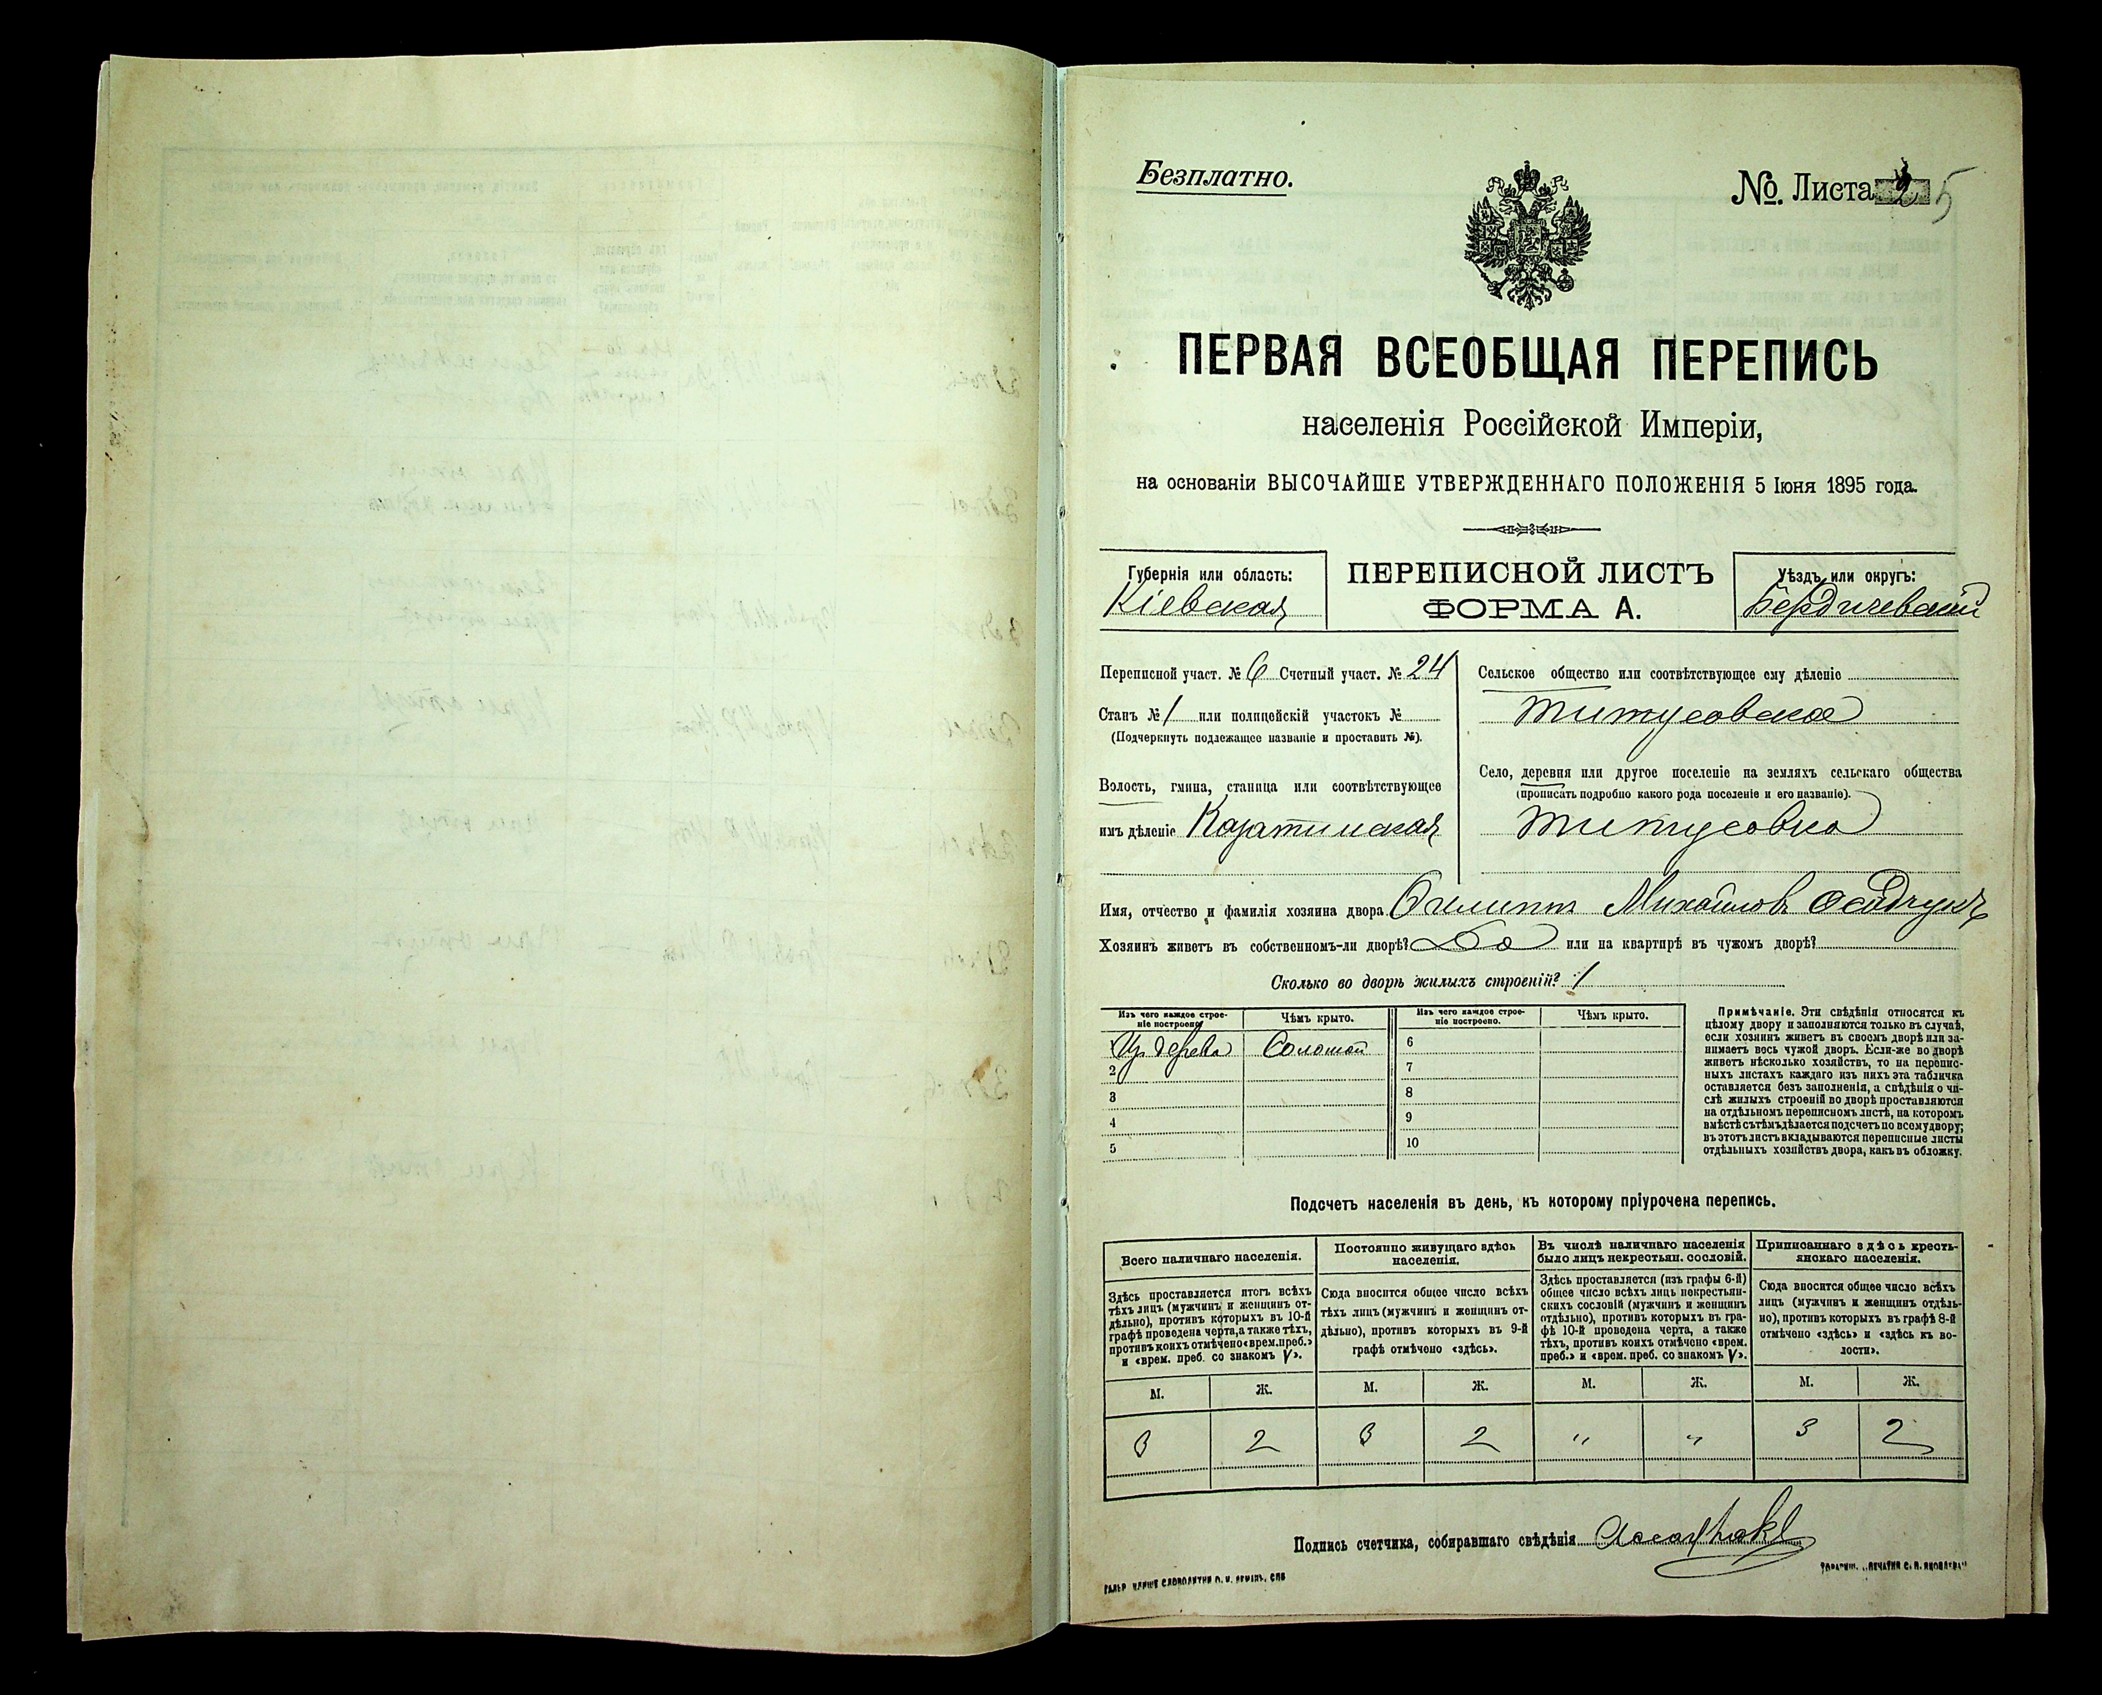 Безплатно.
№. Листа 5
ПЕРВАЯ ВСЕОБЩАЯ ПЕРЕПИСЬ
населенія Россійской Имперіи,
на основаніи ВЫСОЧАЙШЕ УТВЕРЖДЕННАГО ПОЛОЖЕНІЯ 5 Іюня 1895 года.
Губернія или область:
Кіевская
ПЕРЕПИСНОЙ ЛИСТЪ
ФОРМА А.
Уѣздъ или округъ:
Бердичевскій
Переписной участ. № 6 Счетный участ. № 24
Станъ № 1 или полицейскій участокъ №
(Подчеркнуть подлежащее названіе и проставить №).
Волость, гмина, станица или соотвѣтствующее
имъ дѣленіе Козатинская
Сельское общество или соотвѣтствующее ему дѣленіе
Титусовское
Село, деревня или другое поселеніе на земляхъ сельскаго общества
(прописать подробно какого рода поселеніе и его названіе).
Титусовка
Имя, отчество и фамилія хозяина двора Филиппъ Михайловъ Осадчукъ
Хозяинъ живетъ въ собственномъ-ли дворѣ? Да или на квартирѣ въ чужомъ дворѣ?
Сколько во дворѣ жилыхъ строеній? 1
Изъ чего каждое строе-
ніе построено.
Чѣмъ крыто.
Изъ чего каждое строе-
ніе построено.
Чѣмъ крыто.
Изъ дерева Соломой 6
2 7
3 8
4 9
5 10
Примѣчаніе. Эти свѣдѣнія относятся къ
цѣлому двору и заполняются только въ случаѣ,
если хозяинъ живетъ въ своемъ дворѣ или за-
нимаетъ весь чужой дворъ. Если-же во дворѣ
живетъ нѣсколько хозяйствъ, то на перепис-
ныхъ листахъ каждаго изъ нихъ эта табличка
оставляется безъ заполненія, а свѣдѣнія о чи-
слѣ жилыхъ строеній во дворѣ проставляются
на отдѣльномъ переписномъ листѣ, на которомъ
вмѣстѣ съ тѣмъ дѣлается подсчетъ по всему двору;
въ этотъ листъ вкладываются переписные листы
отдѣльныхъ хозяйствъ двора, какъ въ обложку.
Подсчетъ населенія въ день, къ которому пріурочена перепись.
Всего наличнаго населенія.
Здѣсь проставляется итогъ всѣхъ
тѣхъ лицъ (мужчинъ и женщинъ от-
дѣльно), противъ которыхъ въ 10-й
графѣ проведена черта, а также тѣхъ,
противъ коихъ отмѣчено «врем. преб.»
и «врем. преб. со знакомъ V».
Постоянно живущаго здѣсь
населенія.
Сюда вносится общее число всѣхъ
тѣхъ лицъ (мужчинъ и женщинъ от-
дѣльно), противъ которыхъ въ 9-й
графѣ отмѣчено «здѣсь».
Въ числѣ наличнаго населенія
было лицъ некрестьян. сословій.
Здѣсь проставляется (изъ графы 6-й)
общее число всѣхъ лицъ некрестьян-
скихъ сословій (мужчинъ и женщинъ
отдѣльно), противъ которыхъ въ гра-
фѣ 10-й проведена черта, а также
тѣхъ, противъ коихъ отмѣчено «врем.
преб.» и «врем. преб. со знакомъ V».
Приписаннаго здѣсь кресть-
янскаго населенія.
Сюда вносится общее число всѣхъ
лицъ (мужчинъ и женщинъ отдѣль-
но), противъ которыхъ въ графѣ 8-й
отмѣчено «здѣсь» и «здѣсь къ во-
лости».
М. Ж. М. Ж. М. Ж. М. Ж.
3 2 3 2 " " 3 2
Подпись счетчика, собиравшаго свѣдѣнія